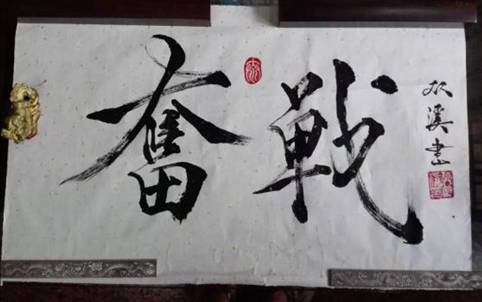 奮戰
溪書